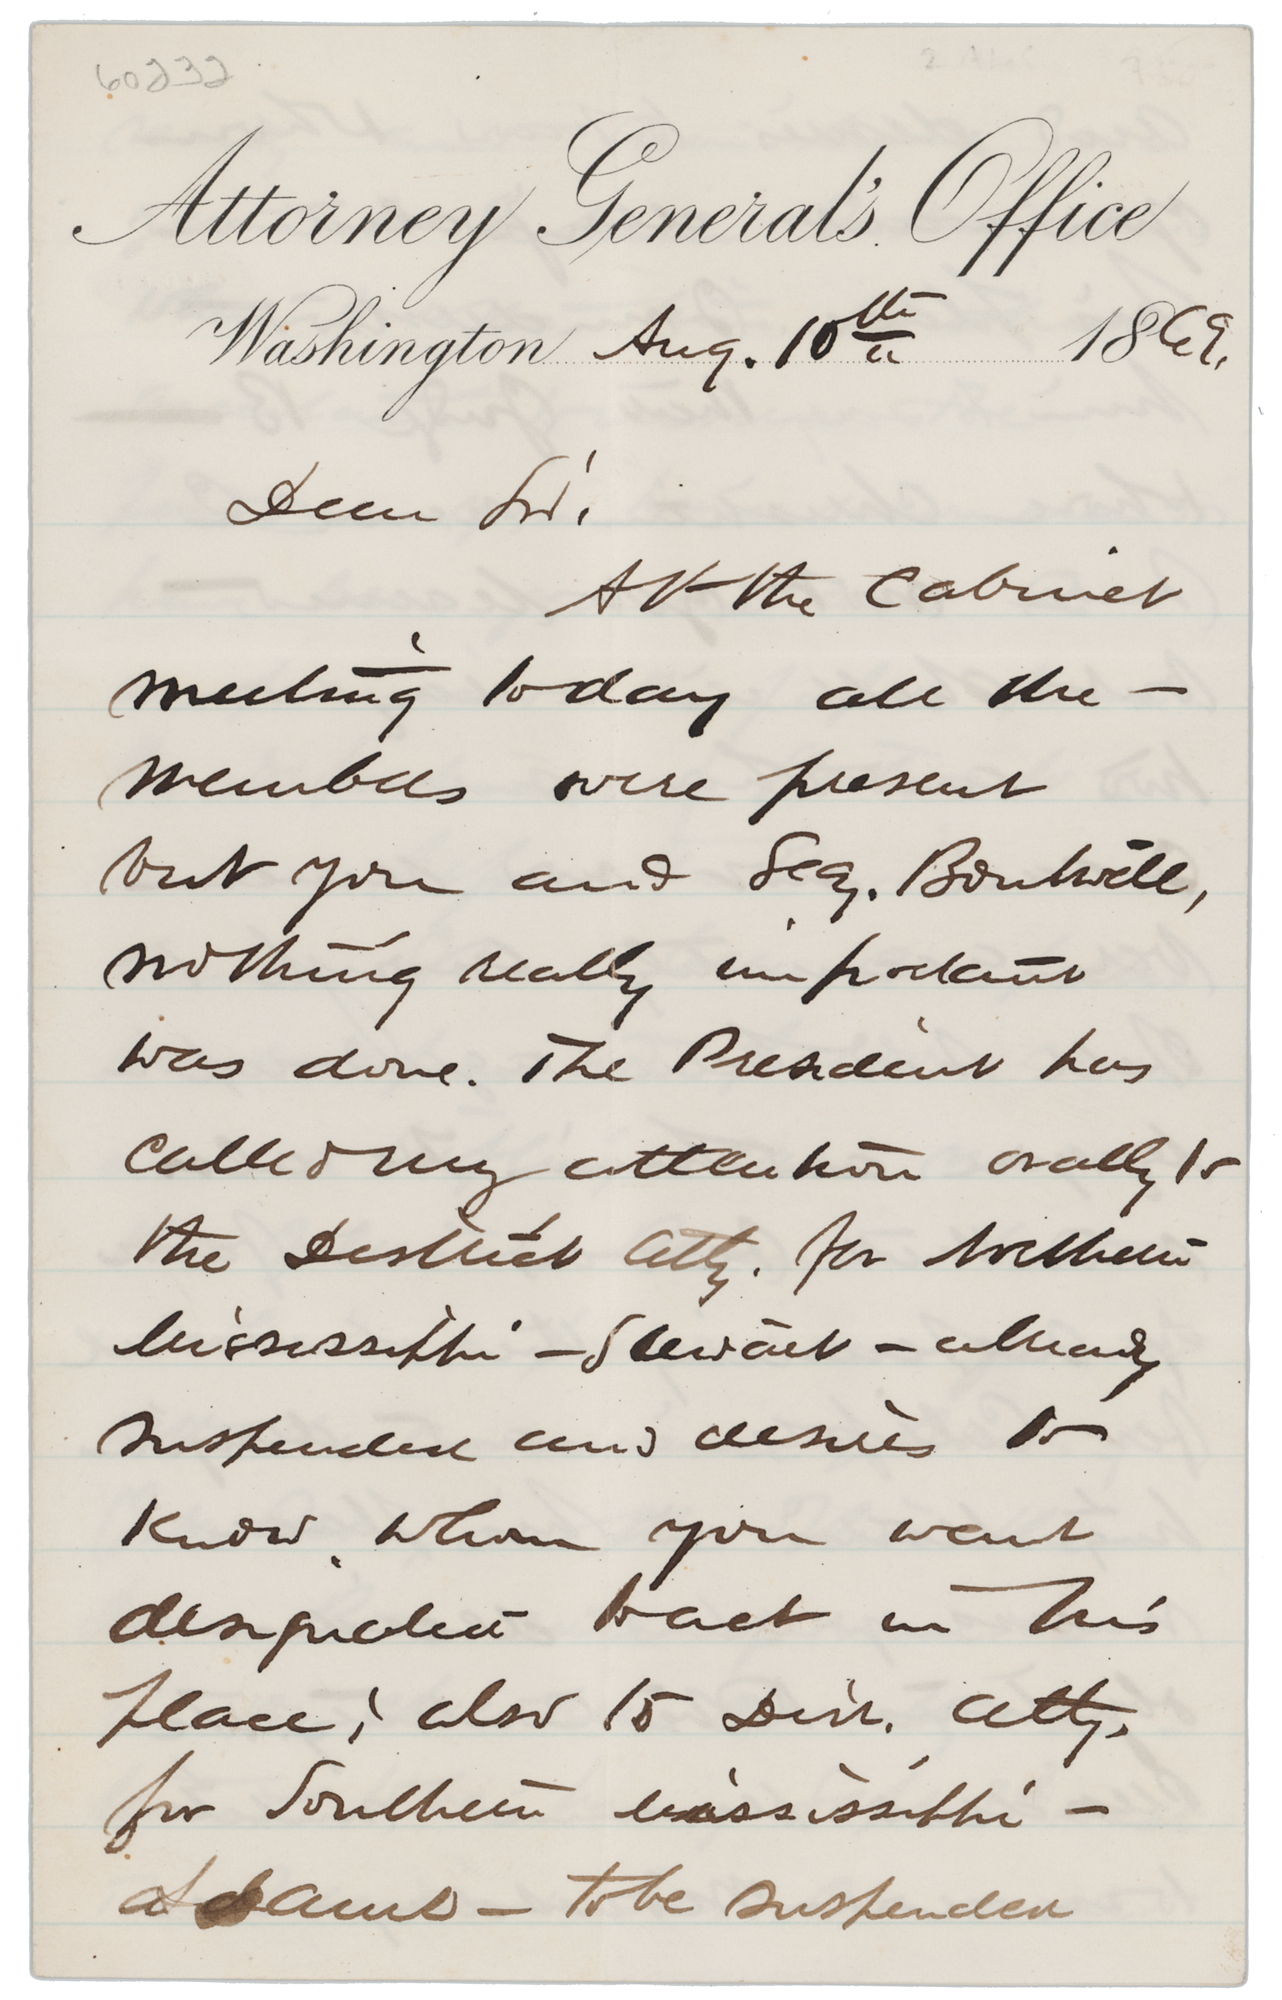 60232
Attorney General's Office
Washington Aug. 10th 1869.
Dear Sir,
At the Cabinet
meeting today all the —
members were present
but you and Secy. Boutwell,
nothing really important
was done. The President has
called my attention orally to
the District Atty. for Northern
Mississippi — Stewart — already
suspended and desires to
know whom you want
designated to act in his
place; also to Dist. Atty.
for Southern Mississippi —
Adams — to be suspended